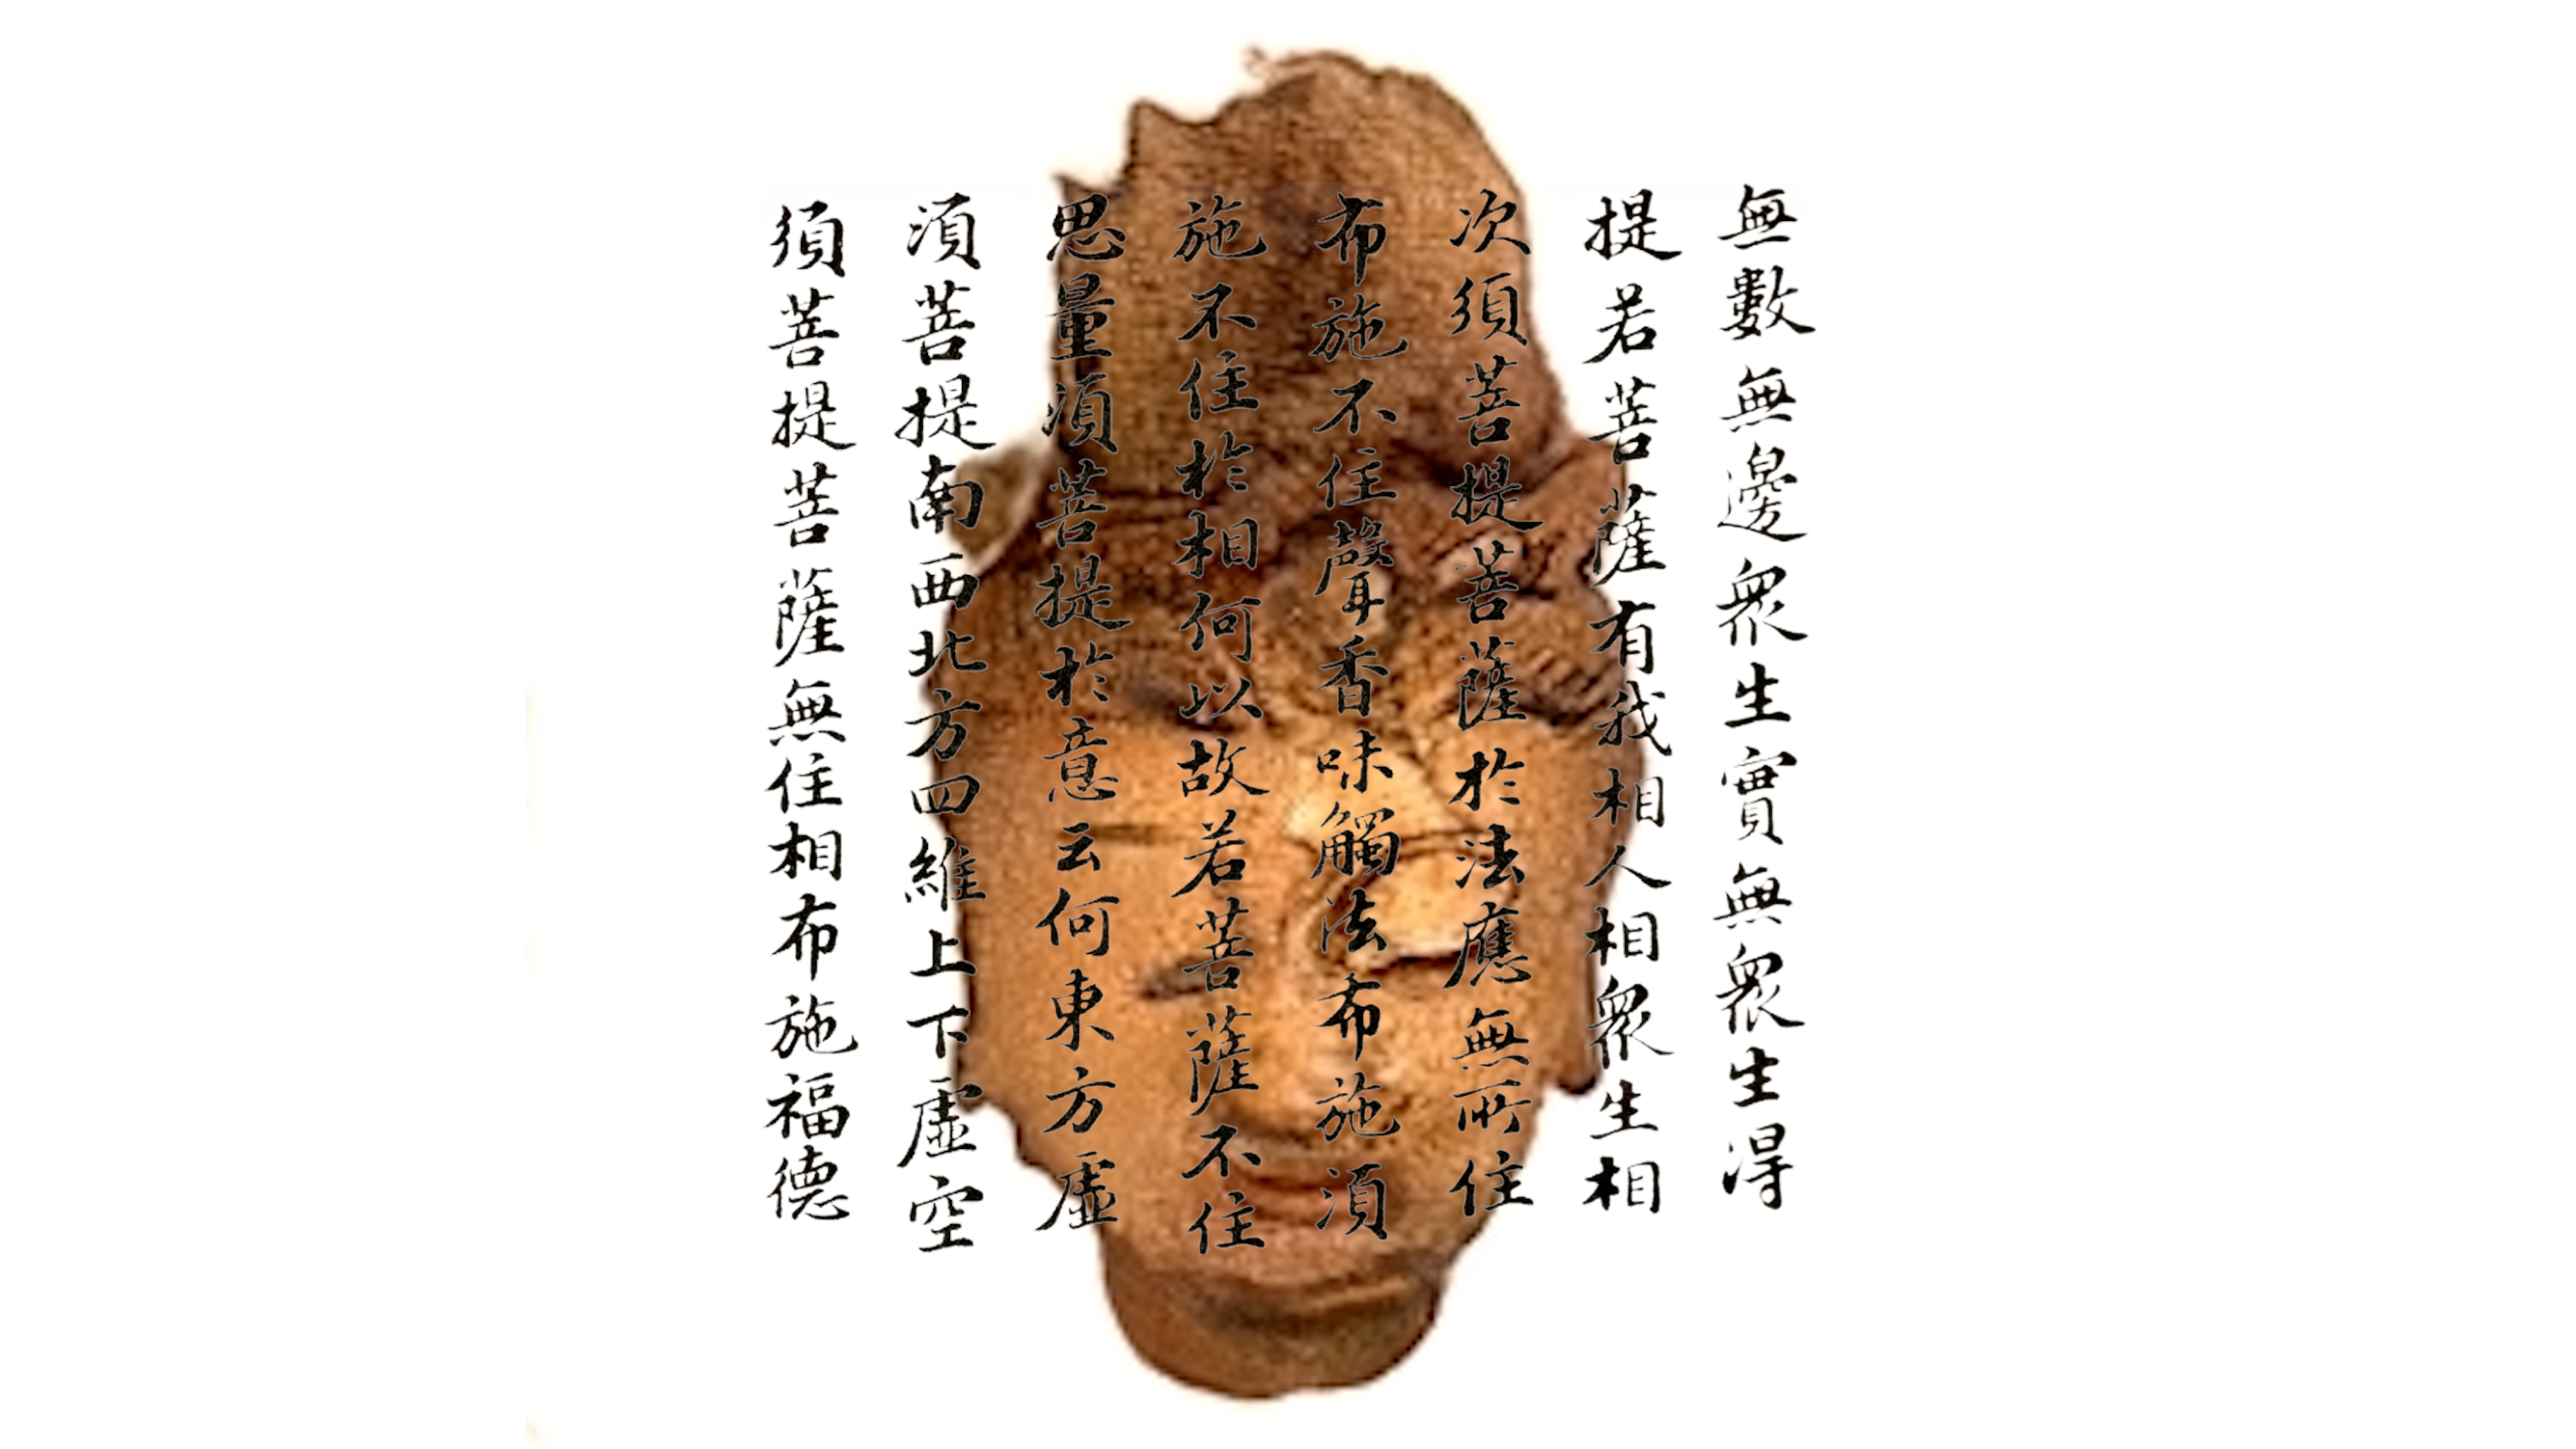 無數無邊衆生實無衆生得
提若菩薩有我相人相衆生相
次須菩提菩薩於法應無所住
布施不住聲香味觸法布施須
施不住於相何以故若菩薩不住
思量須菩提於意云何東方虛
須菩提南西北方四維上下虛空
須菩提菩薩無住相布施福德